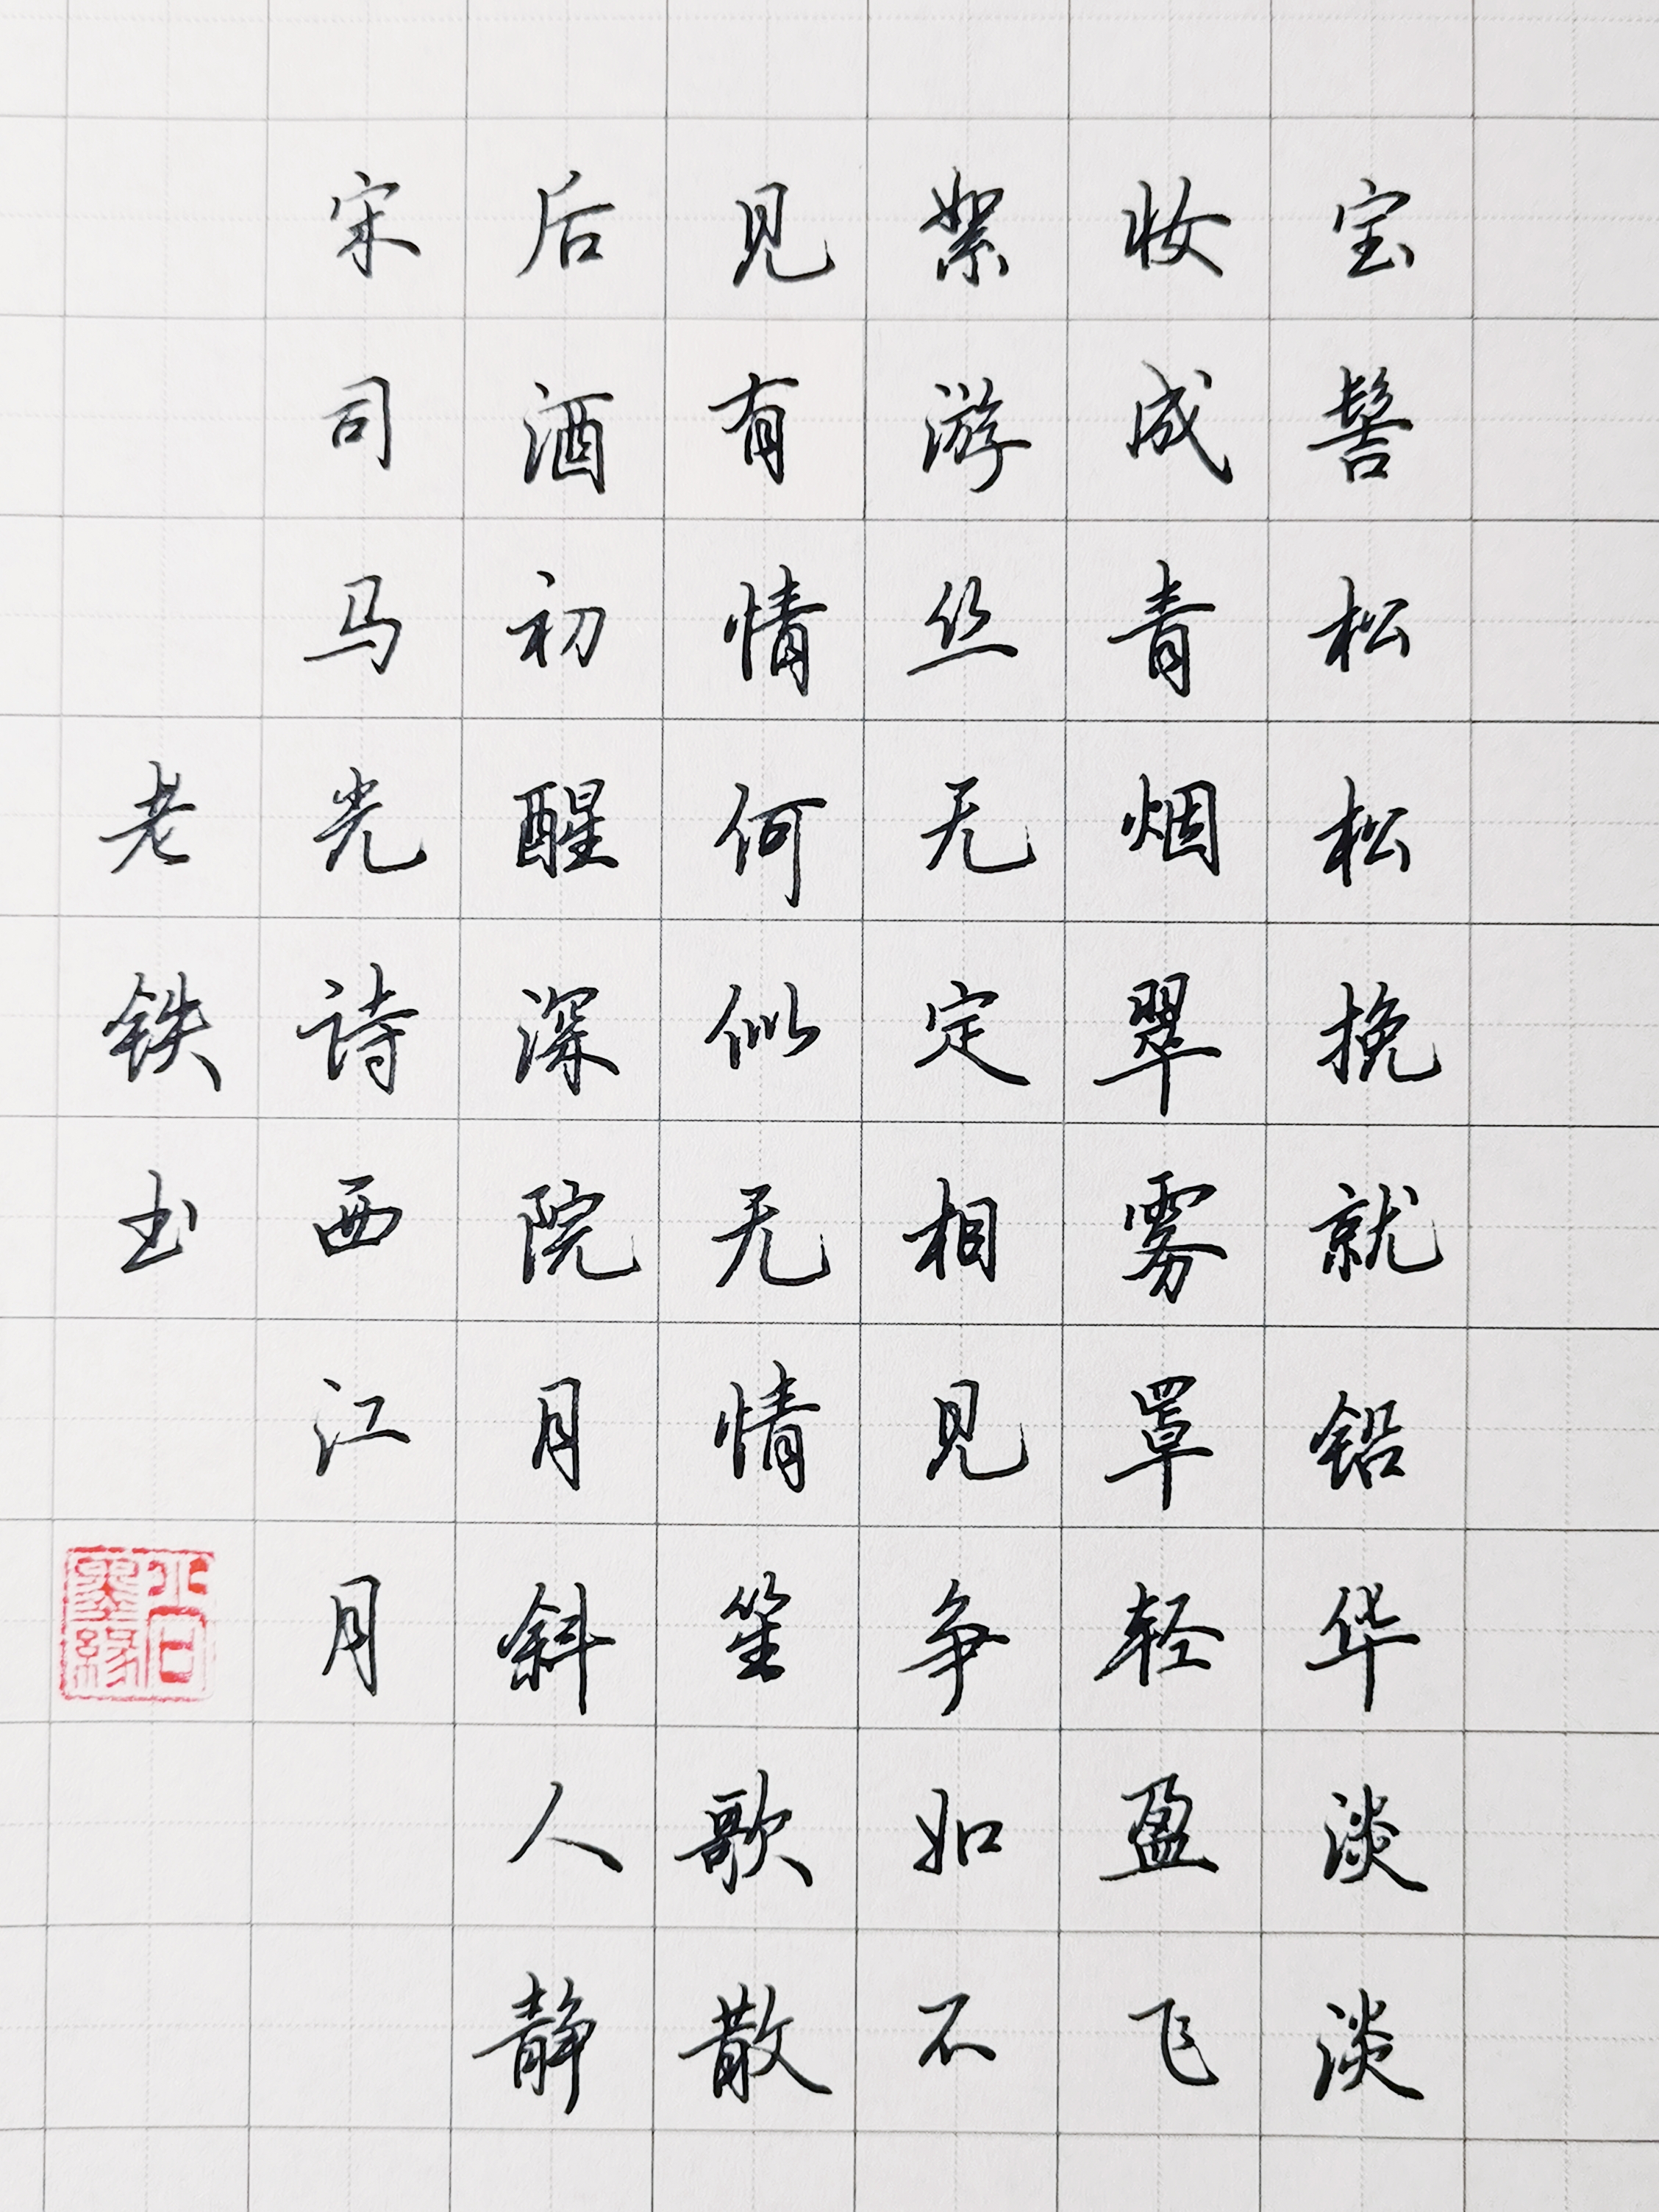 宝髻松松挽就铅华淡淡
妆成青烟翠雾罩轻盈飞
絮游丝无定相见争如不
见有情何似无情笙歌散
后酒初醒深院月斜人静
宋司马光诗西江月
老铁书